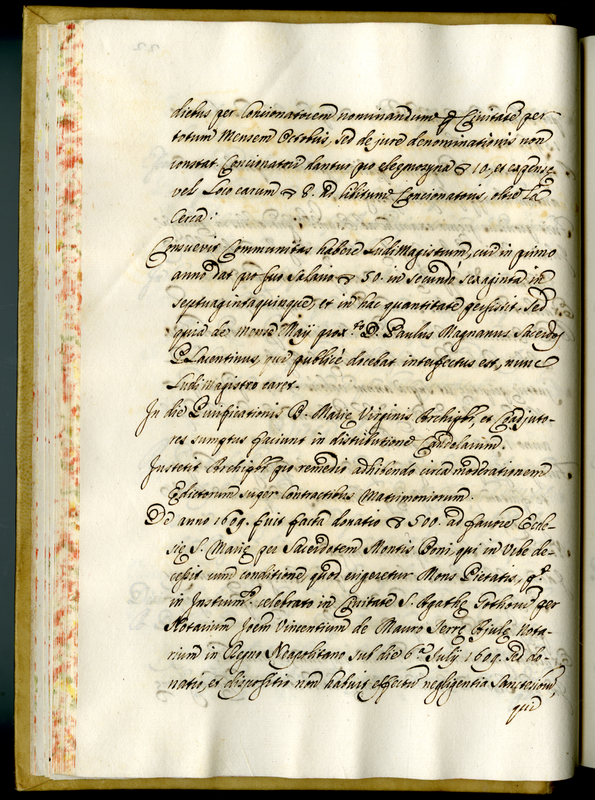 dictus per Concionatorem nominandum p Civitate per
totum Mensem Octobris, sed de jure denominationis non
constat Concionatori dantur pro Elemosyna 10, et expensæ
vel loco earum 8. ad libitum Concionatoris, ultra
Cerca:
Consuevit Communitas habere Ludi Magistrum, cui in primo
anno dat pro suo Salario 50. in secundo sexaginta in
septuagintaquinque, et in hac quantitate persistit. Sed
quia de mense Maij prox.to D. Paulus Magnanus Sacerdos
Placentinus, qui publicè docebat interfectus est, nunc
Ludi Magistro caret.
In die Purificationis B. Mariæ Virginis Archipbr, et Coadjuto-
res sumptus faciunt in distributione Candelarum.
Institit Archipbr pro remedio adhibendo circa moderationem
Edictorum super Contractibus Matrimoniorum.
De anno 1609. fuit facta donatio 500. ad favore Eccle-
siæ S. Mariæ per Sacerdotem Montis Boni, qui in Urbe de-
cessit cum conditione quod erigeretur Mons Pietatis,
in Instrum.to celebrato in Civitate S. Agathæ Gothorum per
Notarium Joem Vincentium de Mauro Terræ Notа-
rium in Regno Neapolitano sub die 6.a Julij 1609. Sed do-
natio, et dispositio non habuit effectum negligentia
qui